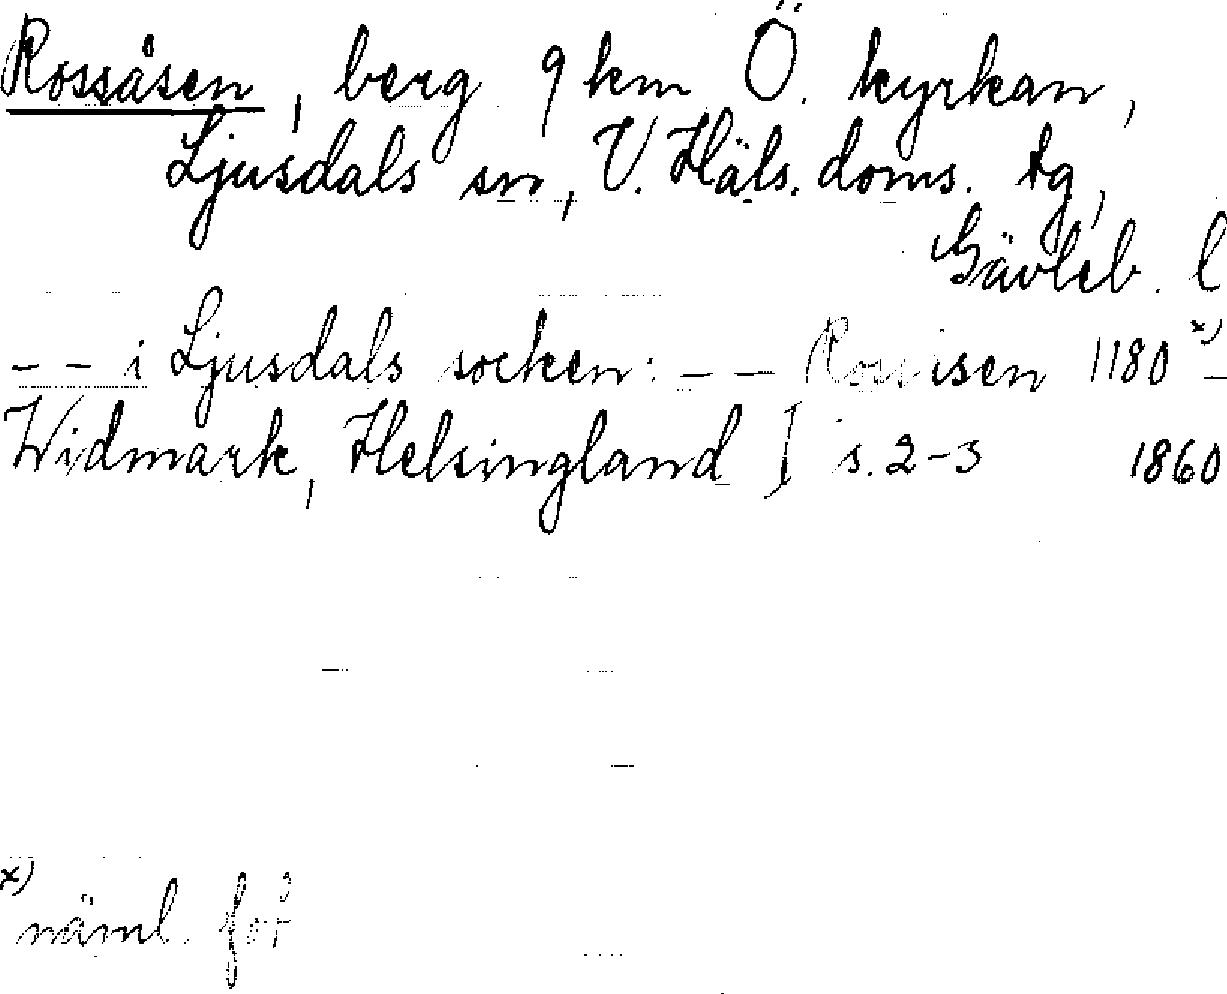 Rossåsen, berg 9 km Ö. kyrkan,
Ljusdals sn, V. Häls. doms. tg,
Gävleb. l
– – i Ljusdals socken: – – 1180 x) –
Widmark, Helsingland I s. 2–3 1860
x) näml. fot